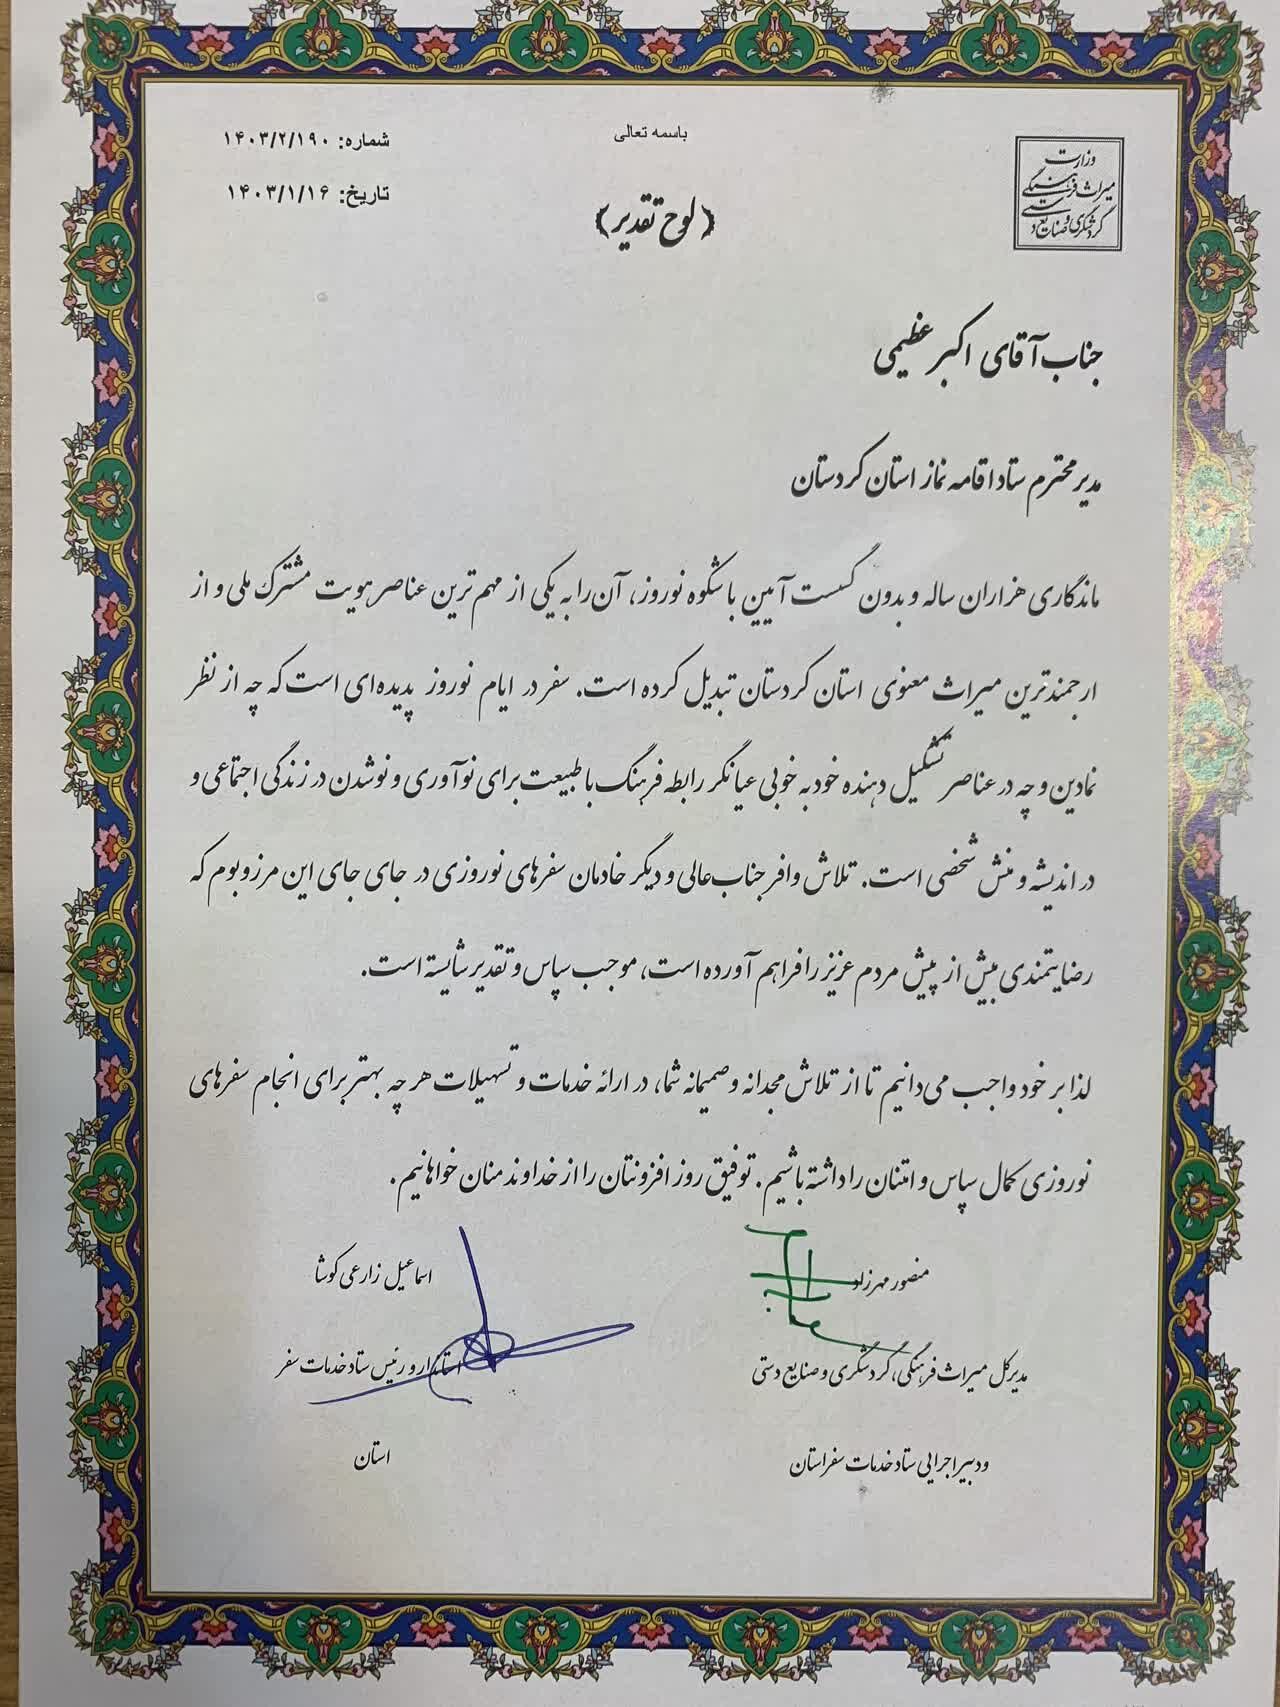 باسمه تعالی
شماره: ۱۴۰۳/۲/۱۹۰
تاریخ: ۱۴۰۳/۱/۱۶
وزارت
میراث فرهنگی
گردشگری و صنایع دستی
(لوح تقدیر)
جناب آقای اکبر عظیمی
مدیر محترم ستاد اقامه نماز استان کردستان
ماندگاری هزاران ساله و بدون گسست آیین باشکوه نوروز، آن را به یکی از مهم ترین عناصر هویت مشترک ملی و از
ارجمندترین میراث معنوی استان کردستان تبدیل کرده است. سفر در ایام نوروز پدیده‌ای است که چه از نظر
نمادین و چه در عناصر تشکیل دهنده خود به خوبی عیانگر رابطه فرهنگ با طبیعت برای نوآوری و نوشدن در زندگی اجتماعی و
در اندیشه و منش شخصی است. تلاش وافر جناب‌عالی و دیگر خادمان سفرهای نوروزی در جای جای این مرز و بوم که
رضایتمندی بیش از پیش مردم عزیز را فراهم آورده است، موجب سپاس و تقدیر شایسته است.
لذا بر خود واجب می‌دانیم تا از تلاش مجدانه و صمیمانه شما، در ارائه خدمات و تسهیلات هر چه بهتر برای انجام سفرهای
نوروزی کمال سپاس و امتنان را داشته باشیم. توفیق روز افزونتان را از خداوند منان خواهانیم.
منصور مهرزاد
مدیرکل میراث فرهنگی، گردشگری و صنایع دستی
و دبیر اجرایی ستاد خدمات سفر استان
اسماعیل زارعی کوشا
استاندار و رئیس ستاد خدمات سفر
استان